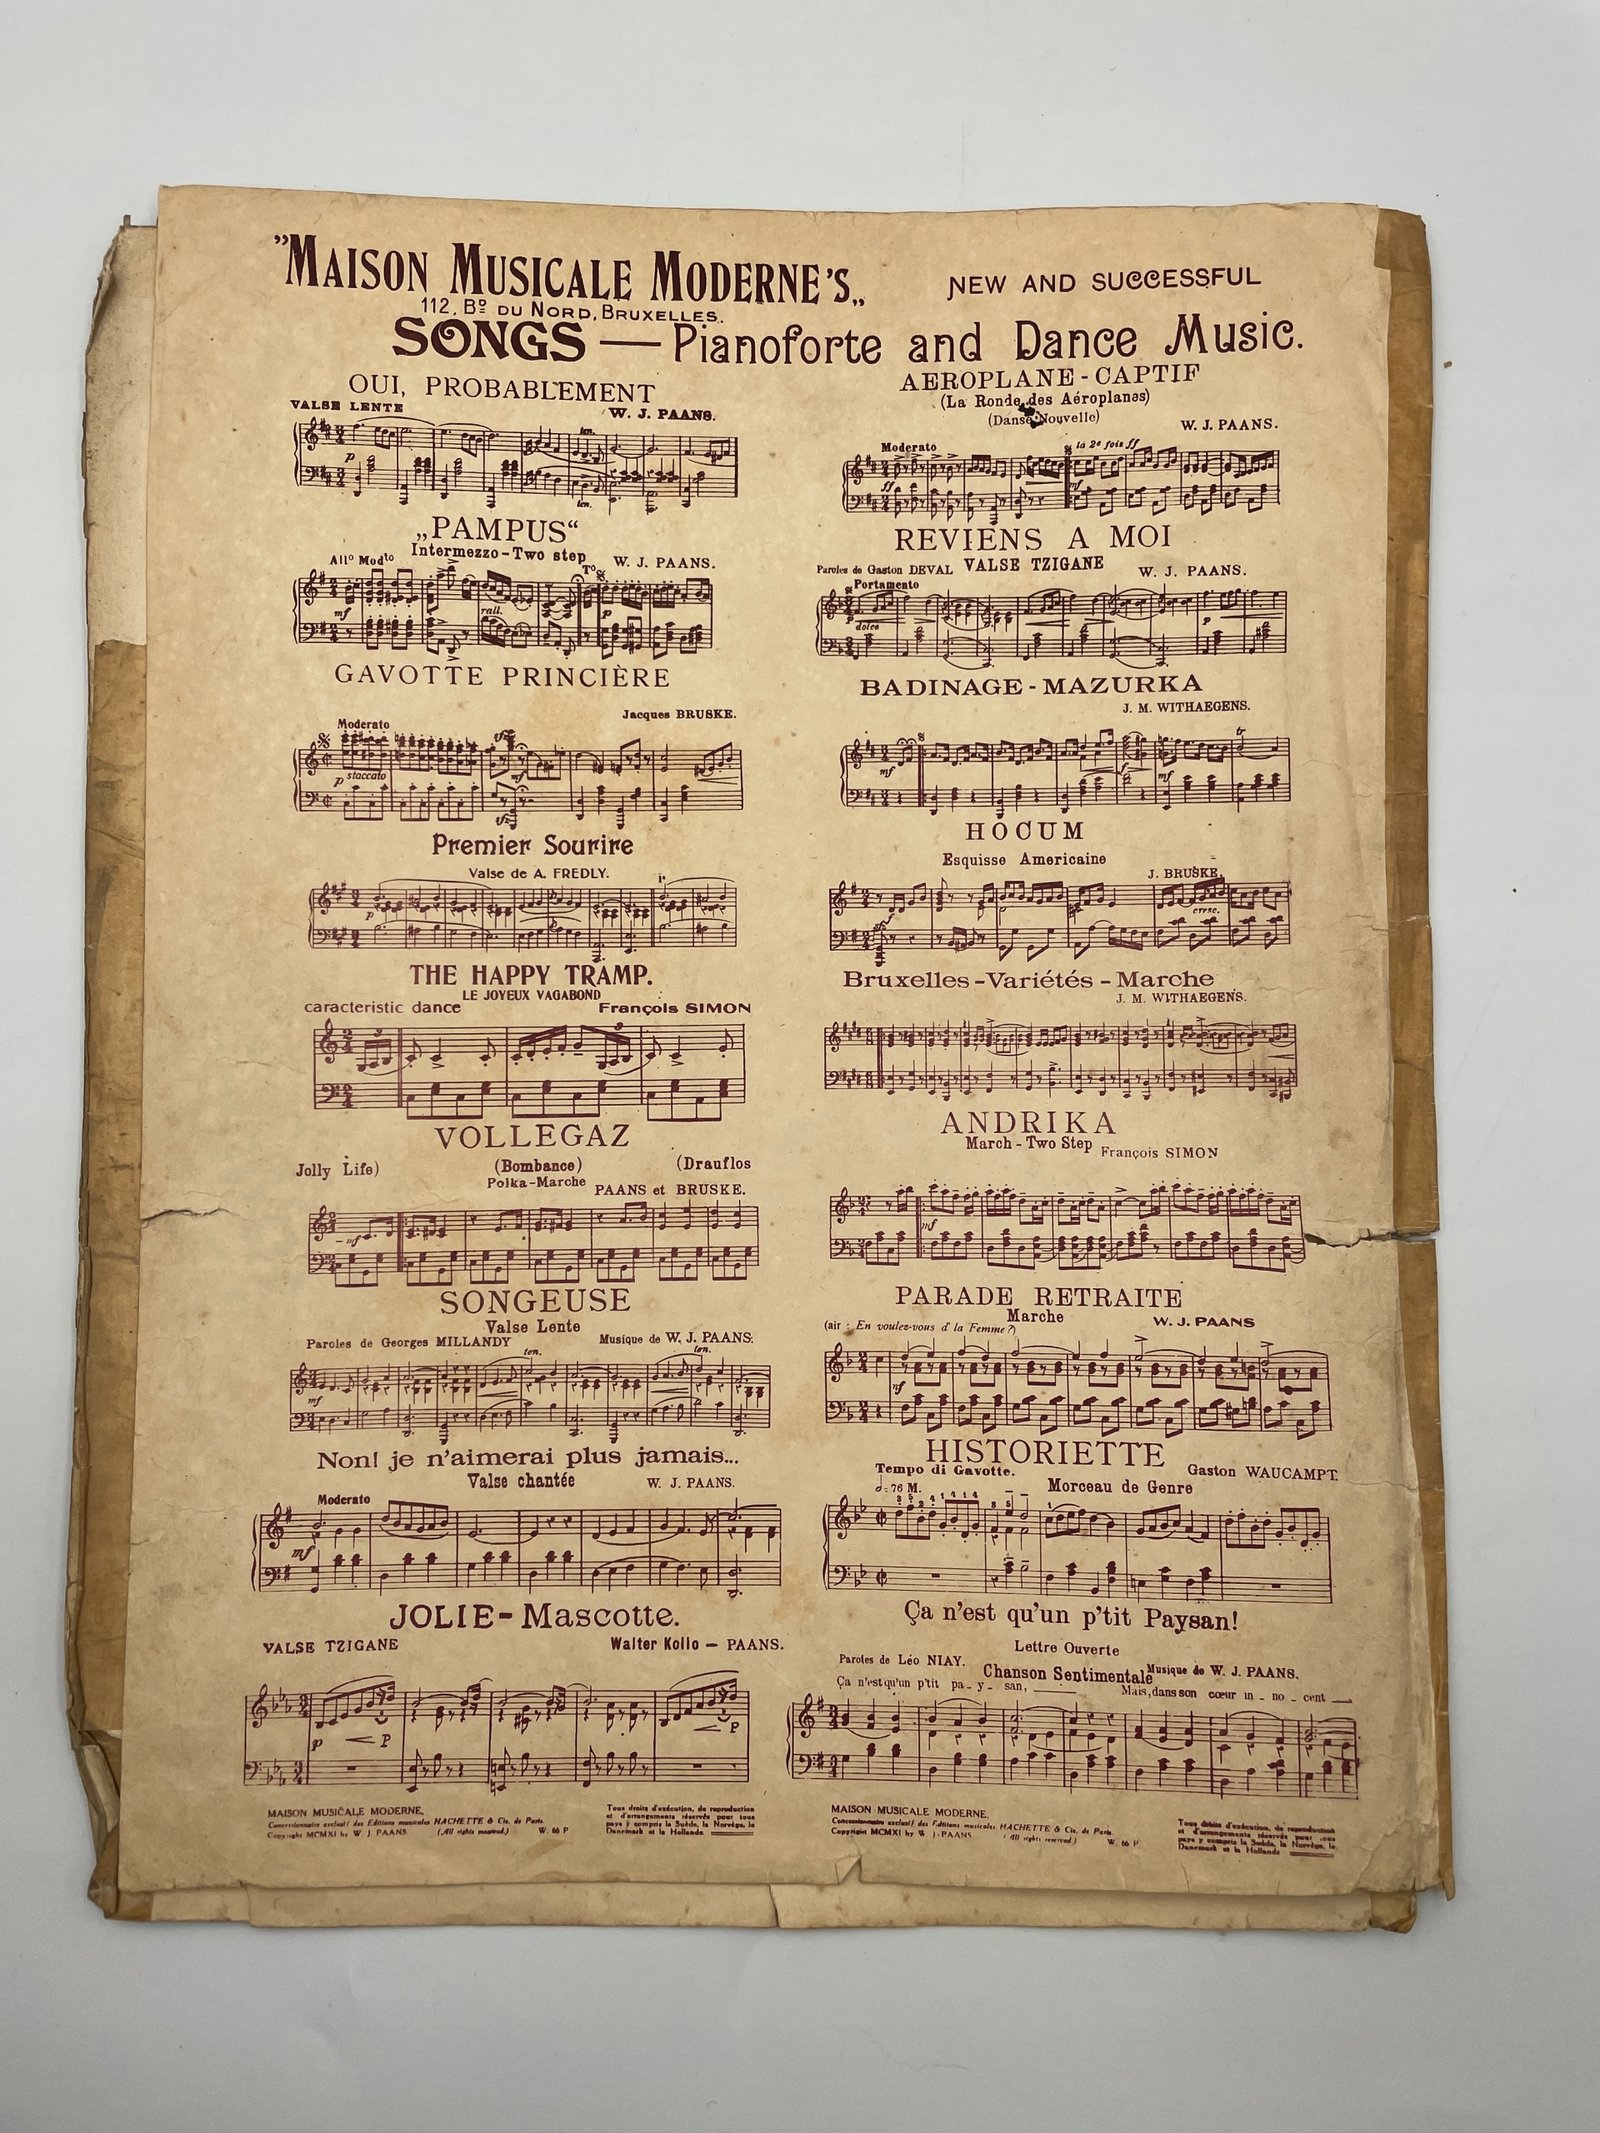 "MAISON MUSICALE MODERNE'S„
NEW AND SUCCESSFUL
112, Bᴰ DU NORD, BRUXELLES.
SONGS — Pianoforte and Dance Music.
OUI, PROBABLEMENT
VALSE LENTE
W. J. PAANS.
ten.
p
ten.
„PAMPUS“
Intermezzo-Two step
Allº Modᵗº
W. J. PAANS.
Tº
mf
rall.
p
GAVOTTE PRINCIÈRE
Jacques BRUSKE.
Moderato
p staccato
mf
Premier Sourire
Valse de A. FREDLY.
p
THE HAPPY TRAMP.
LE JOYEUX VAGABOND
caracteristic dance
François SIMON
3
3
VOLLEGAZ
Jolly Life)
(Bombance)
(Drauflos
Polka-Marche
PAANS et BRUSKE.
mf
SONGEUSE
Valse Lente
Paroles de Georges MILLANDY
Musique de W. J. PAANS.
ten.
ten.
mf
Non! je n'aimerai plus jamais...
Valse chantée
W. J. PAANS.
Moderato
mf
JOLIE-Mascotte.
VALSE TZIGANE
Walter Kollo — PAANS.
p
P
P
MAISON MUSICALE MODERNE.
Concessionnaire exclusif des Editions musicales HACHETTE & Cie. de Paris
Copyright MCMXI by W. J. PAANS. (All rights reserved.) W. 66 P
Tous droits d'exécution, de reproduction
et d'arrangements réservés pour tous
pays y compris la Suède, la Norvège, le
Danemark et la Hollande.
AEROPLANE-CAPTIF
(La Ronde des Aéroplanes)
(Danse Nouvelle)
W. J. PAANS.
Moderato
la 2e fois ff
ff
mf
REVIENS A MOI
Paroles de Gaston DEVAL
VALSE TZIGANE
W. J. PAANS.
Portamento
p
dolce
p
BADINAGE-MAZURKA
J. M. WITHAEGENS.
tr
mf
f
mf
HOCUM
Esquisse Americaine
J. BRUSKE.
cresc.
Bruxelles-Variétés-Marche
J. M. WITHAEGENS.
ANDRIKA
March-Two Step
François SIMON
mf
PARADE RETRAITE
Marche
(air : En voulez-vous d' la Femme?)
W. J. PAANS
HISTORIETTE
Tempo di Gavotte.
Gaston WAUCAMPT.
= 76 M.
Morceau de Genre
Ça n'est qu'un p'tit Paysan!
Lettre Ouverte
Paroles de Léo NIAY.
Chanson Sentimentale
Musique de W. J. PAANS.
Ça n'est qu'un p'tit pa - y - san, Mais, dans son cœur in - no - cent
MAISON MUSICALE MODERNE.
Concessionnaire exclusif des Editions musicales HACHETTE & Cie. de Paris
Copyright MCMXI by W. J. PAANS (All rights reserved.) W. 66 P
Tous droits d'exécution, de reproduction
et d'arrangements réservés pour tous
pays y compris la Suède, la Norvège, le
Danemark et la Hollande